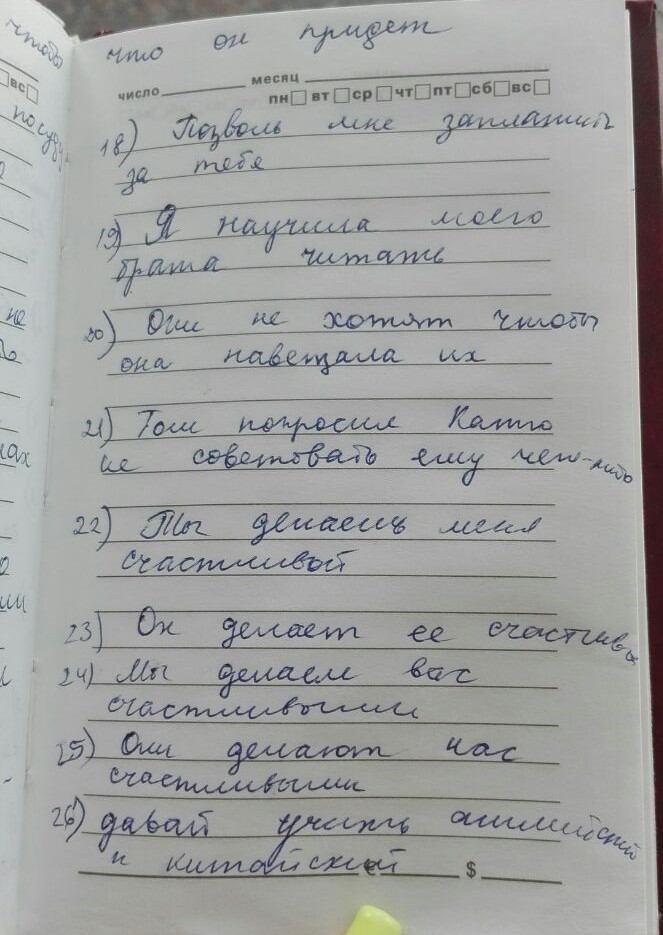 чтобы
вс
посуду
не
что он придет
число месяц
пн вт ср чт пт сб вс
18) Позволь мне заплатить
за тебя
19) Я научила моего
брата читать
20) Они не хотят чтобы
она навещала их
21) Том попросил Катю
не советовать ему чего-либо
22) Ты делаешь меня
счастливой
23) Он делает ее счастливой
24) Мы делаем вас
счастливыми
25) Они делают нас
счастливыми
26) давай учить английский
и китайский
$